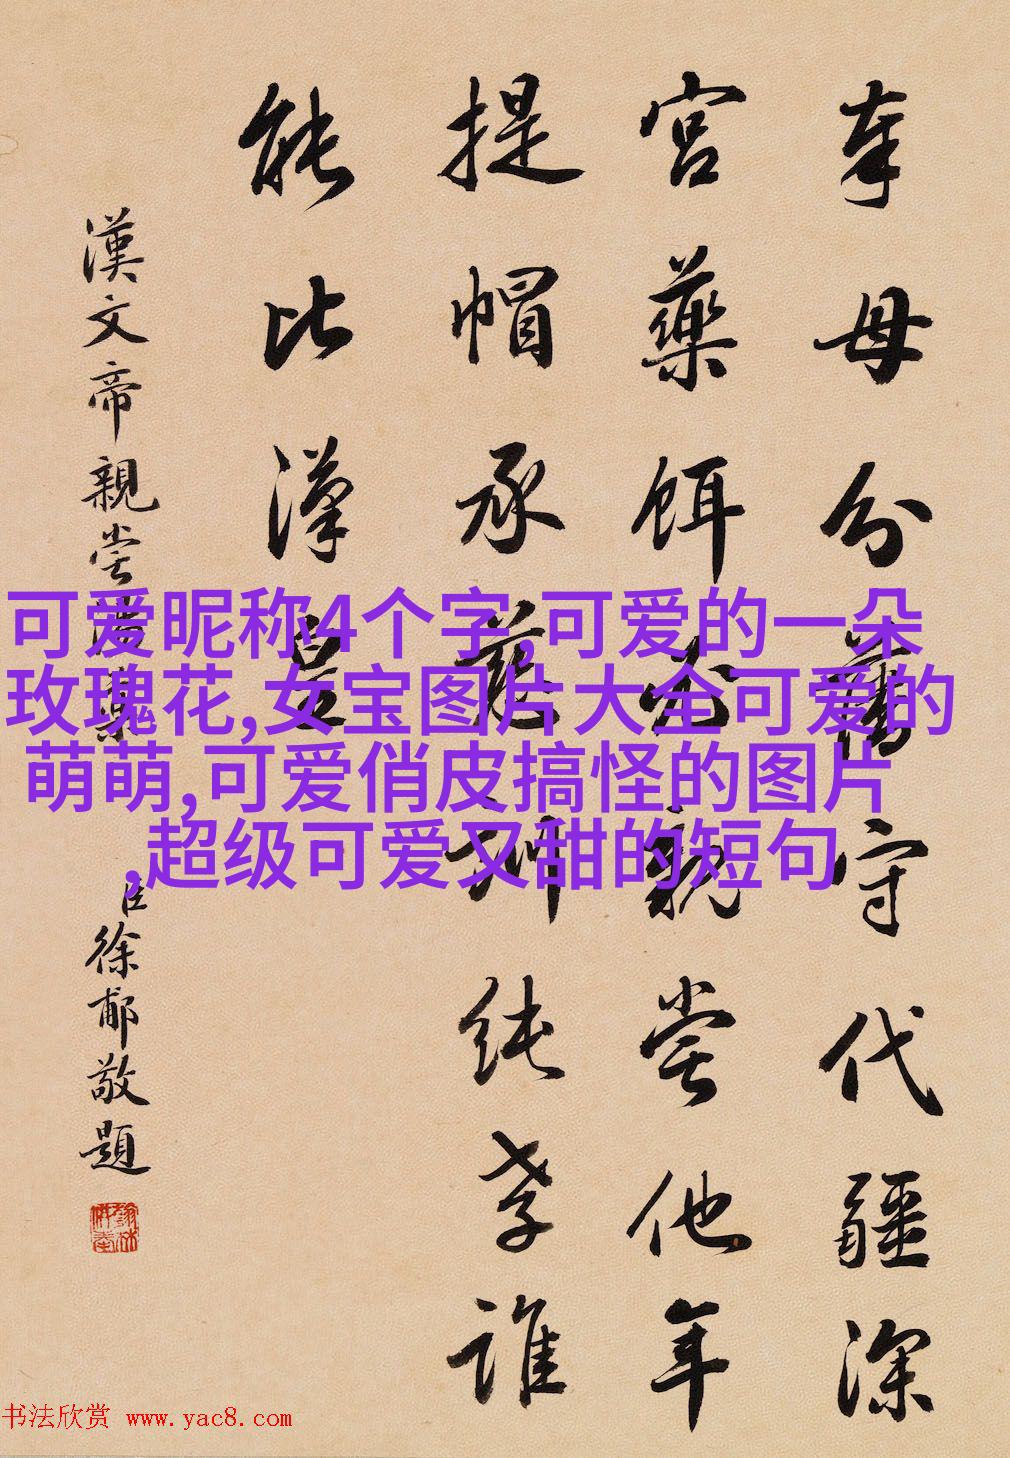 奉母分藩守代疆深
宮藥餌親嘗他年
提帽承慈訓純孝誰
能比漢皇
漢文帝親嘗湯藥
臣徐郙敬題
可爱昵称4个字,可爱的一朵
玫瑰花,女宝图片大全可爱的
萌萌,可爱俏皮搞怪的图片
,超级可爱又甜的短句
书法欣赏 www.yac8.com